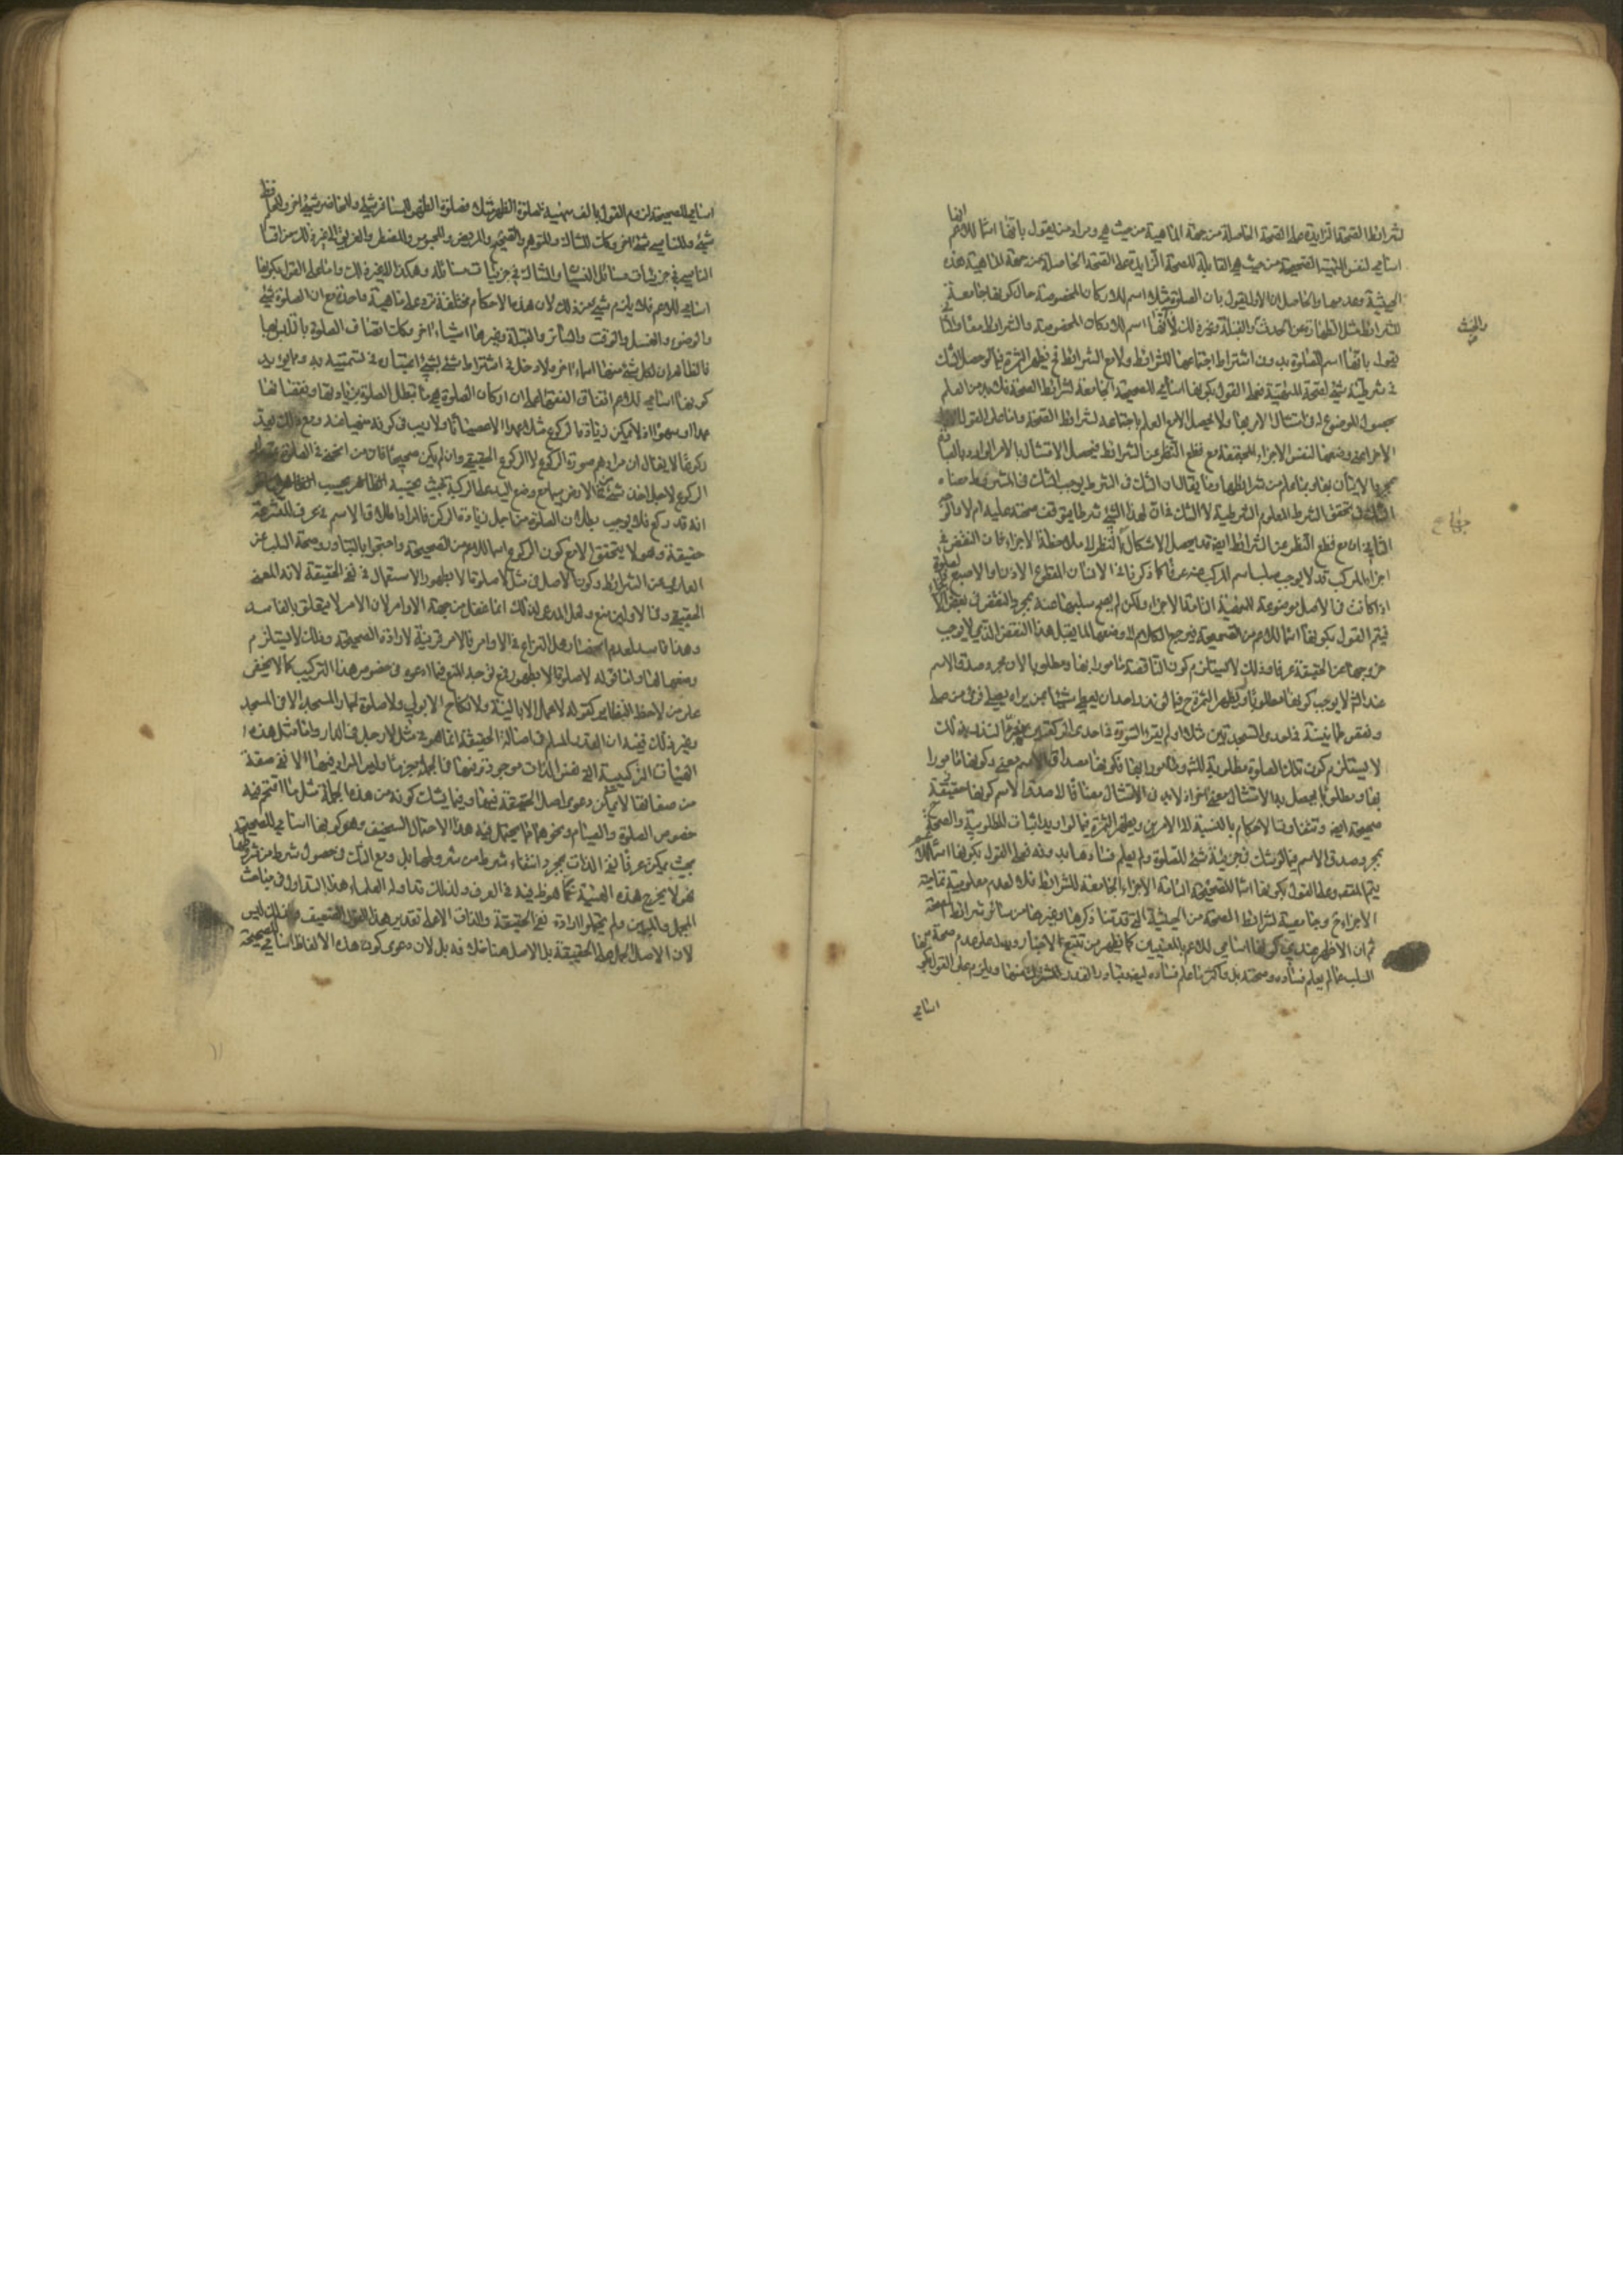 لشرائط الصحة الزايدة على الصحة الحاصلة من جهة الماهية من حيث هي ومراد من يقول بانها اسما للاعم انها
اسامي لنفس المهية الصحيحة من حيث هي القابلة للصحة الزايدة على الصحة الحاصلة من جهة الماهية هذه
الحيثية وعدمها والحاصل ان الاول يقول بان الصلوة مثلا اسم للاركان المخصوصة حال كونها جامعة
للشرائط مثل الطهارة عن الحدث والقبلة ونحو ذلك لا انها اسم للاركان المخصوصة والشرائط معا والثاني
والخبث
يقول بانها اسم للصلوة بدون اشتراط اجتماعها للشرائط ولا مع الشرائط فح يظهر الثمرة فيما لو حصل الشك
في شرطية شيء لصحة المهية فعلى القول بكونها اسامي للصحيحة الجامعة لشرائط الصحة فلا بد من العلم
بحصول الموضوع له في امتثال الامر بها ولا يحصل الا مع العلم باجتماعه لشرائط الصحة واما على القول
الاخر اعني وضعها لنفس الاجزاء المحققة مع قطع النظر عن الشرائط فيحصل الامتثال بالامر الوارد بالعبادة
بمجرد الاتيان بها وبما علم من شرائطها وما يقال ان الشك في الشرط يوجب الشك في المشروط معناه
الشك في تحقق الشرط المعلوم الشرطية لا الشك في ان لهذا الشيء شرطا يتوقف صحته عليه ام لا
الثاني ان مع قطع النظر عن الشرائط ايضا قد يحصل الاشكال بالنظر لا ملاحظة الاجزاء فان النقص في
اجزاء المركب قد لا يوجب سلب اسم المركب عنه عرفا كما ذكرنا في الانسان المقطوع الاذن او الاصبع
اذا كانت في الاصل موضوعة للمهية التامة الاجزاء ولكن لم يصح سلبها عنه بمجرد النقص في بعض الاجزاء
فيتم القول بكونها اسما للاعم من الصحيحة فيرجع الكلام الى وضعها لما يقبل هذا النقص الذي لا يوجب
خروجها عن الحقيقة عرفا وذلك لا يستلزم كون الناقصة مامورا بها ومطلوبا لان مجرد صدق الاسم
عند الشارع لا يوجب كونها مطلوبة ويظهر الثمرة ح فيما لو نذر احد ان يعطي شيئا لمن يراه يصلي
ونقص طمانينة في احدى السجدتين مثلا او لم يقرء السورة في احدى الركعتين
لا يستلزم كون تلك الصلوة مطلوبة للشارع ومامورا بها فكونها مصداق الاسم معنى وكونها مامورا
بها ومطلوبا يحصل به الامتثال معنى اخر اذ لا بد في الامتثال مضافا الى صدق الاسم كونها
صحيحة ايضا وتتفاوت الاحكام بالنسبة الى الامرين ويظهر الثمرة فيما لو اريد اثبات المطلوبية والصحة
بمجرد صدق الاسم فيما لو شك في جزئية شيء للصلوة ولم يعلم فسادها به فعلى القول بكونها اسما للاعم
يتم المقصود وعلى القول بكونها اسما للصحيحة التامة الاجزاء الجامعة للشرائط فلا لعدم معلومية تمامية
الاجزاء ح وجامعية لشرائط الصحة من الحيثية التي قدمنا ذكرها وغيرها من سائر شرائط الصحة
ثم ان الاظهر عندي كونها اسامي للاعم بالمعنيين كما يظهر من تتبع الاخبار ويدل عليه عدم صحة
السلب عما لم يعلم فساده وصحته بل واكثر ما علم فساده ايضا وتبادر القدر المشترك منها ويلزم على القول بكونها
اسامي
اسامي للصحيحة لزوم القول بالف مهية لصلوة الظهر مثلا فصلوة الظهر للمسافر شيء وللحاضر شيء اخر وللحافظ
شيء وللناسي شيء اخر وكذا للشاك وللمتوهم والصحيح والمريض والمحبوس والمضطر والغريق الى غير ذلك من اقسام
الناسي في جزئيات مسائل النسيان والشك في جزئيات مسائله وهكذا الى غير ذلك واما على القول بكونها
اسامي للاعم فلا يلزم شيء من ذلك لان هذه الاحكام مختلفة ترد على ماهية واحدة مع ان الصلوة شيء
والوضوء والغسل والوقت والساتر والقبلة وغيرها اشياء اخر وكذا اتصاف الصلوة بالتلبس بها
فالظاهر ان لكل شيء منها اسماء اخر ولا دخل في اشتراط شيء بشيء اعتباره في تسميته به ومما يؤيد
كونها اسامي للاعم اتفاق الفقهاء على ان اركان الصلوة هي ما تبطل الصلوة بزيادتها ونقصانها
عمدا وسهوا اذ لا يمكن زيادة الركوع مثلا عمدا الا عصيانا ولا ريب في كونه منهيا عنه ومع ذلك يعد
ركوعا لا يقال ان مرادهم صورة الركوع لا الركوع الحقيقي وان لم يكن صحيحا فان من انحنى في الصلوة بمقدار
الركوع لاجل اخذ شيء من الارض سيما مع وضع اليد على الركبة بحيث يحسبه الناظر بحسب الظاهر
انه قد ركع فلا يوجب بطلان الصلوة من اجل زيادة الركن فالمراد اطلاق الاسم في عرف المتشرعة
حقيقة وهو لا يتحقق الا مع كون الركوع اسما للاعم من الصحيحة واحتجوا بالتبادر وصحة السلب عن
العارية عن الشرائط وكون الاصل في مثل لا صلوة الا بطهور الاستعمال في نفي الحقيقة لانه المعنى
الحقيقي وفي الاولين منع ولعل المدعي لذلك انما غفل من جهة الاوامر لان الامر لا يتعلق بالفاسد
وهذا فاسد لعدم انحصار محل النزاع في الاوامر فالامر قرينة لارادة الصحيحة وذلك لا يستلزم
وضعها لها واما قوله لا صلوة الا بطهور فتوجه المنع فيما ادعوه في خصوص هذا التركيب كما لا يخفى
على من لاحظ النظاير كقوله لا عمل الا بالنية ولا نكاح الا بولي ولا صلوة لجار المسجد الا في المسجد
وغير ذلك فبعد ان القدر المسلم في اصالة الحقيقة انما هو في مثل لا رجل في الدار واما مثل هذه
الهيئات التركيبية التي نفس الذات موجودة فيها في الجملة جزما وليس المراد فيها الا نفي صفة
من صفاتها لا يمكن دعوى اصل الحقيقة فيها وفيما يشك كونه من هذه الجملة مثل ما
خصوص الصلوة والصيام ونحوهما مما يحتمل فيه هذا الاحتمال السخيف وهو كونها اسامي للصحيحة
بحيث يكون عرفا نفي الذات بمجرد انتفاء شرط من شروطها بل ومع الشك في حصول شرط من شروطها
فهو لا يخرج هذه الهيئة عما هو ظ فيه في العرف ولذلك تداول العلماء هذا التداول في مباحث
المجمل والمبين ولم يحملوا ارادة نفي الحقيقة والذات الا على تقدير هذا القول الضعيف وذلك ليس
لان الاصل الحمل على الحقيقة بل الاصل هنا خلافه بل لان دعوى كون هذه الالفاظ اسامي للصحيحة